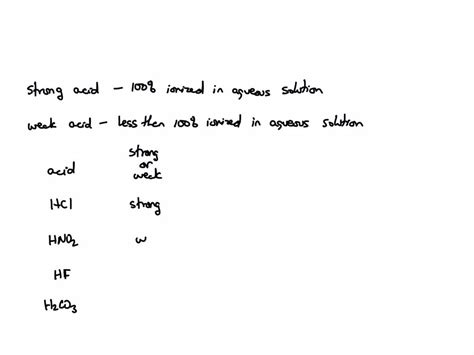 strong acid – 100% ionized in aqueous solution
weak acid – less then 100% ionized in aqueous solution
acid strong or weak
HCl strong
HNO₂ w
HF
H₂CO₃